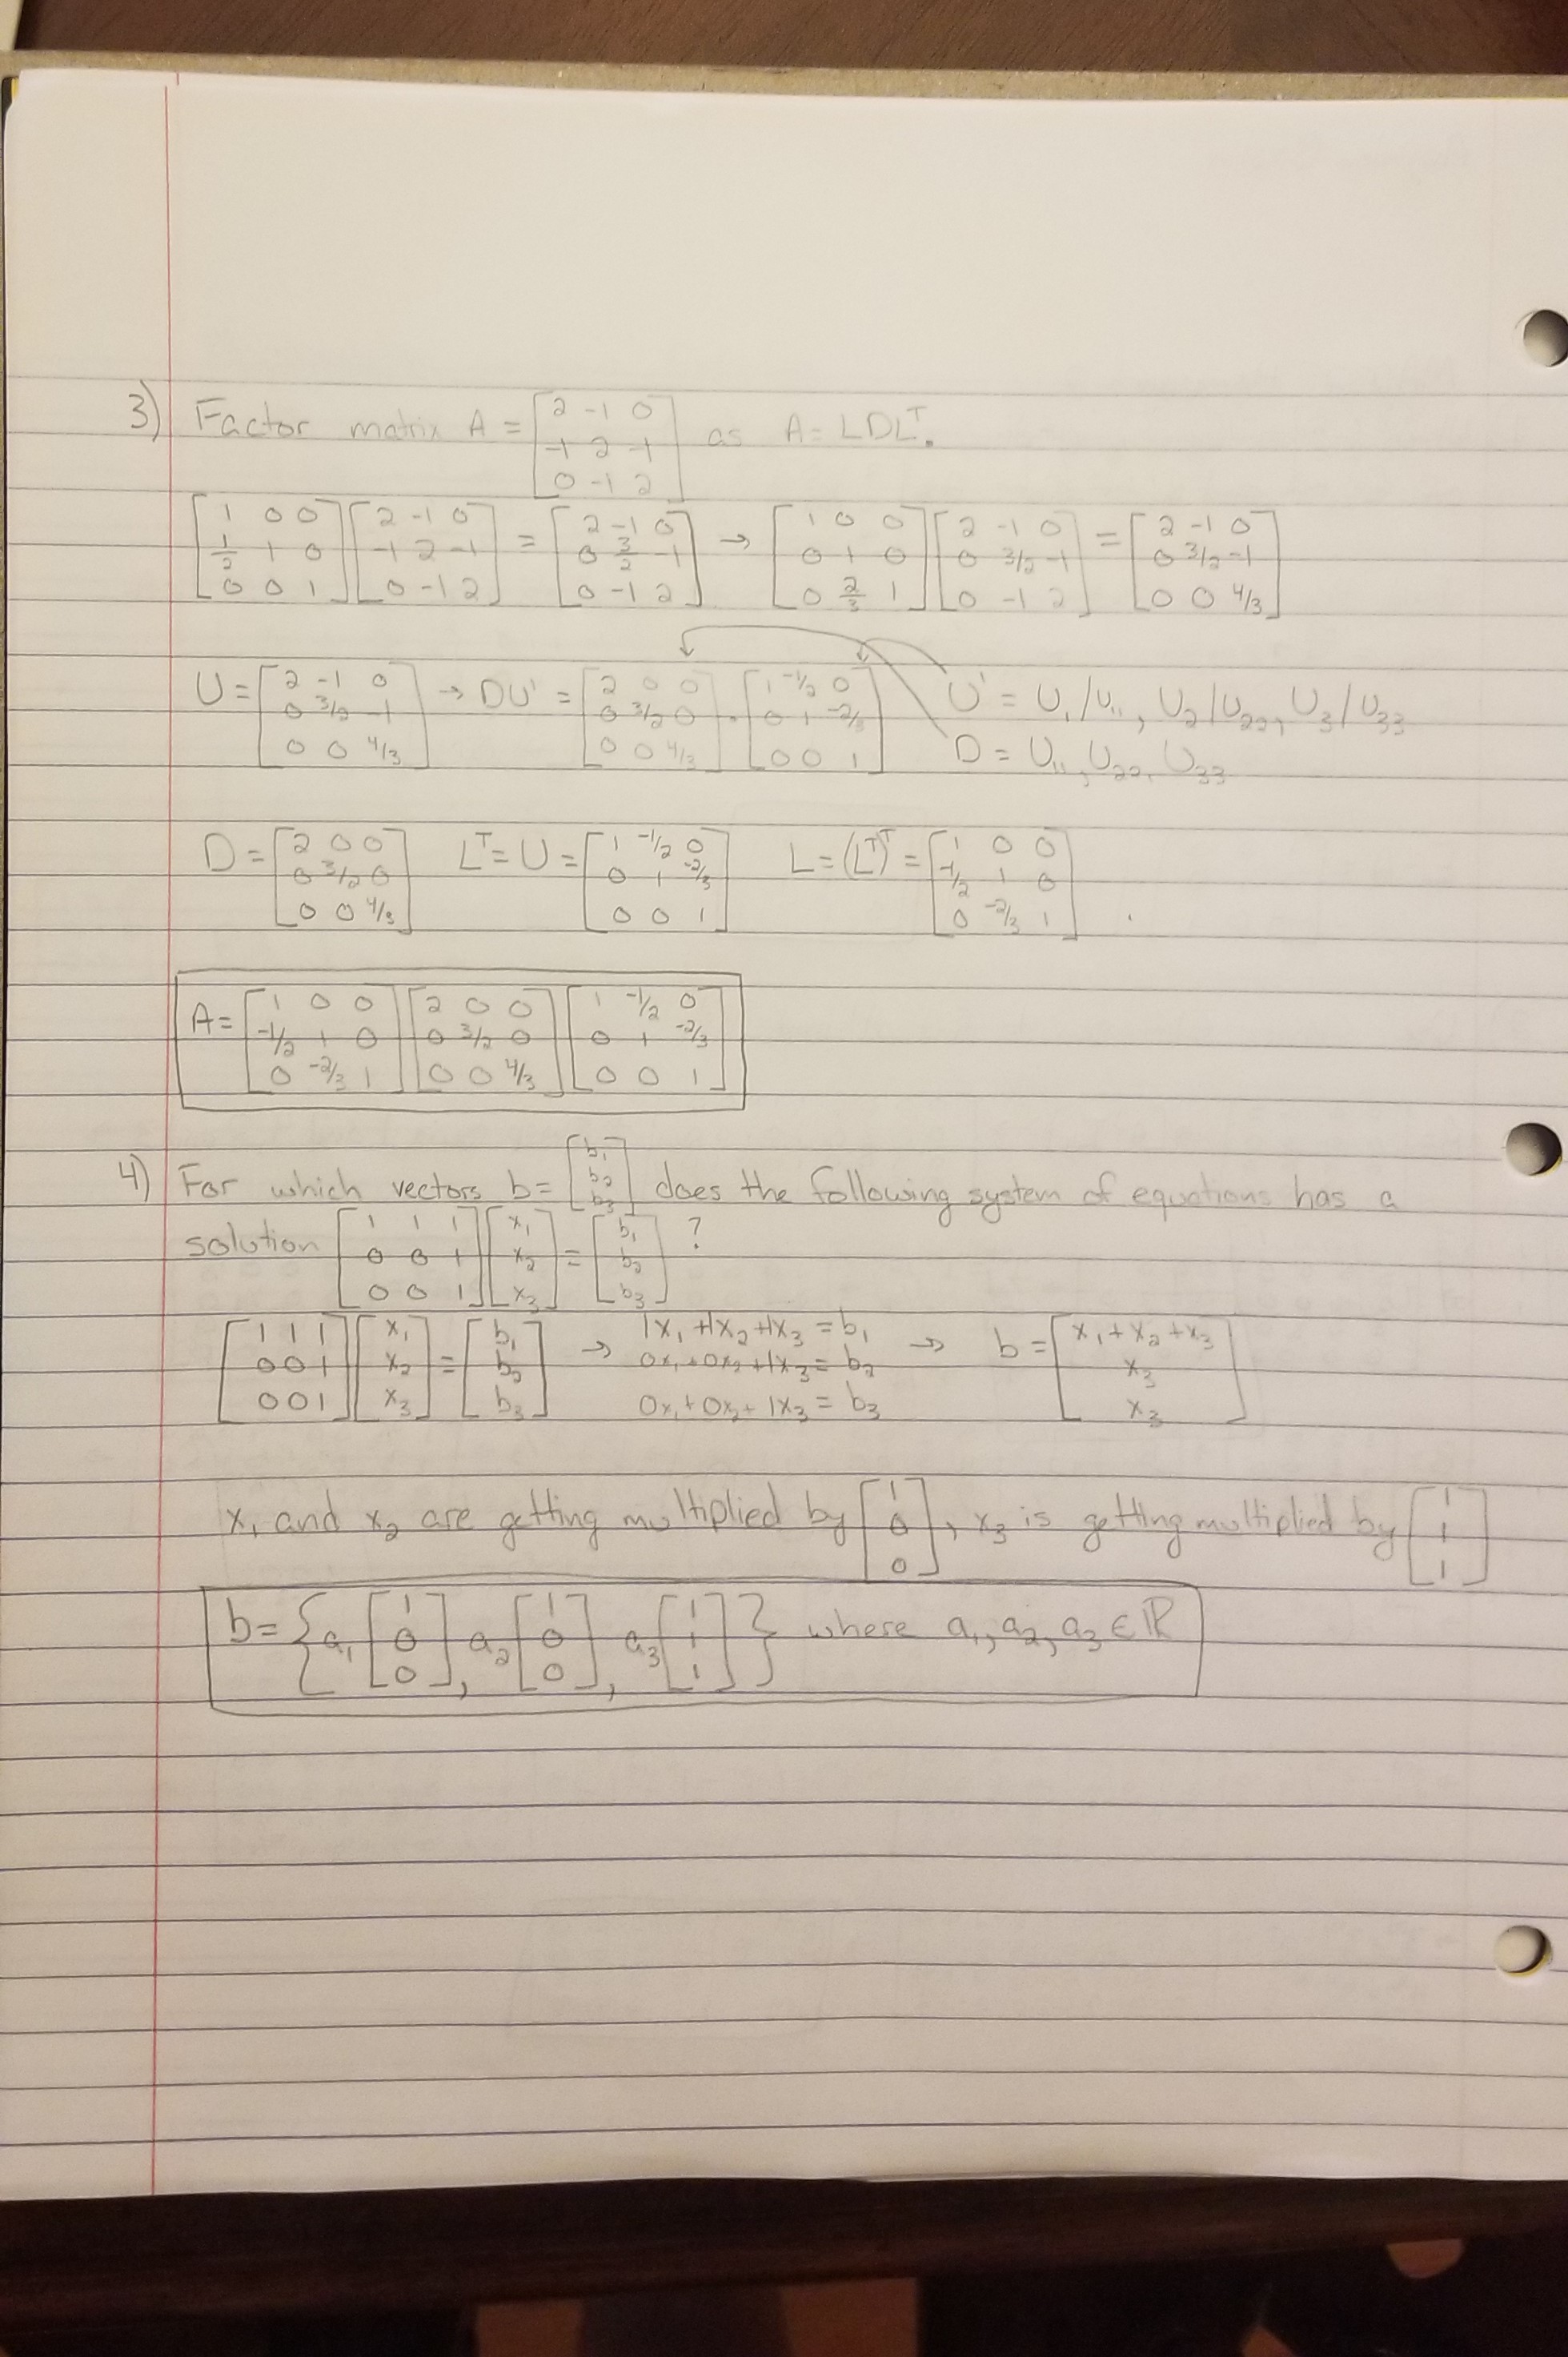 3) Factor matrix A = [2 -1 0; -1 2 -1; 0 -1 2] as A = LDLᵀ.
[1 0 0; 1/2 1 0; 0 0 1] [2 -1 0; -1 2 -1; 0 -1 2] = [2 -1 0; 0 3/2 -1; 0 -1 2] → [1 0 0; 0 1 0; 0 2/3 1] [2 -1 0; 0 3/2 -1; 0 -1 2] = [2 -1 0; 0 3/2 -1; 0 0 4/3]
U = [2 -1 0; 0 3/2 -1; 0 0 4/3] → DU' = [2 0 0; 0 3/2 0; 0 0 4/3] · [1 -1/2 0; 0 1 -2/3; 0 0 1] U' = U₁/U₁₁, U₂/U₂₂, U₃/U₃₃
D = U₁₁, U₂₂, U₃₃
D = [2 0 0; 0 3/2 0; 0 0 4/3] Lᵀ = U = [1 -1/2 0; 0 1 -2/3; 0 0 1] L = (Lᵀ)ᵀ = [1 0 0; -1/2 1 0; 0 -2/3 1]
A = [1 0 0; -1/2 1 0; 0 -2/3 1] [2 0 0; 0 3/2 0; 0 0 4/3] [1 -1/2 0; 0 1 -2/3; 0 0 1]
4) For which vectors b = [b₁; b₂; b₃] does the following system of equations has a
solution [1 1 1; 0 0 1; 0 0 1] [x₁; x₂; x₃] = [b₁; b₂; b₃] ?
[1 1 1; 0 0 1; 0 0 1] [x₁; x₂; x₃] = [b₁; b₂; b₃] → 1x₁ + 1x₂ + 1x₃ = b₁; 0x₁ + 0x₂ + 1x₃ = b₂; 0x₁ + 0x₂ + 1x₃ = b₃ → b = [x₁ + x₂ + x₃; x₃; x₃]
x₁ and x₂ are getting multiplied by [1; 0; 0], x₃ is getting multiplied by [1; 1; 1]
b = {a₁ [1; 0; 0], a₂ [1; 0; 0], a₃ [1; 1; 1]} where a₁, a₂, a₃ ∈ ℝ